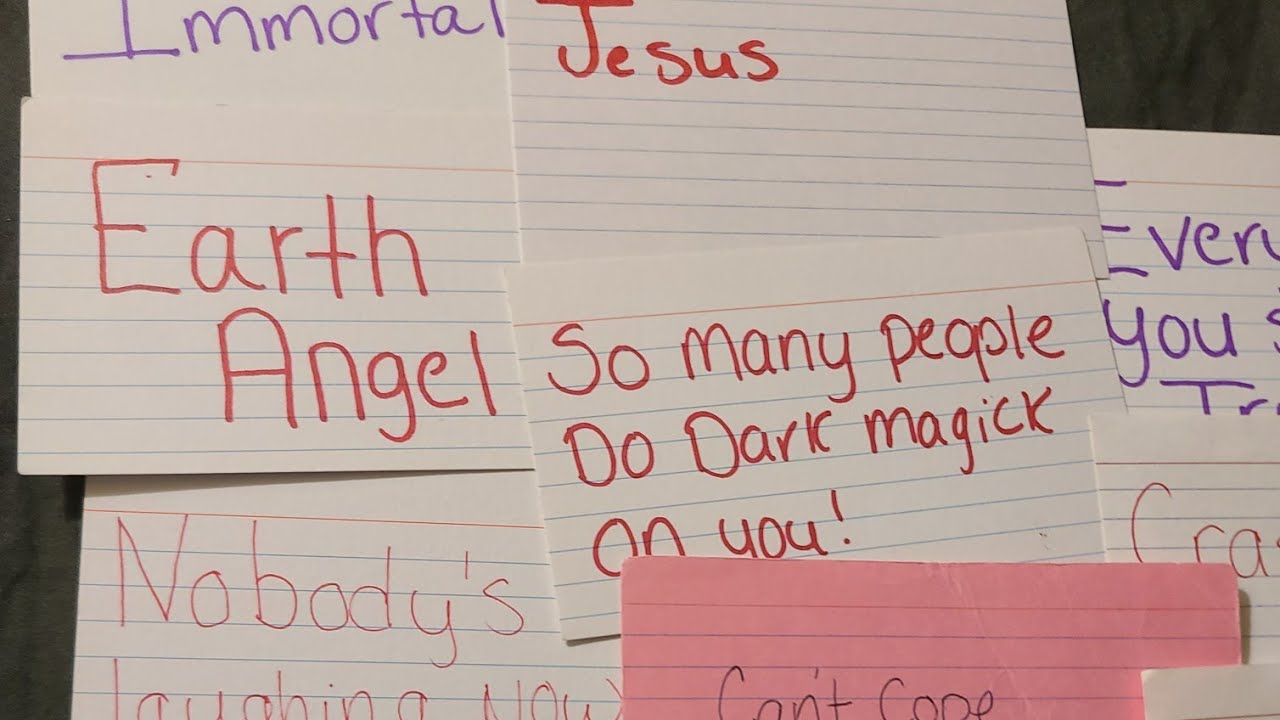 Immortal
Jesus
Earth
Angel
So many people
Do Dark magick
on you!
Every
you
Nobody's
laughing now
Can't Cope